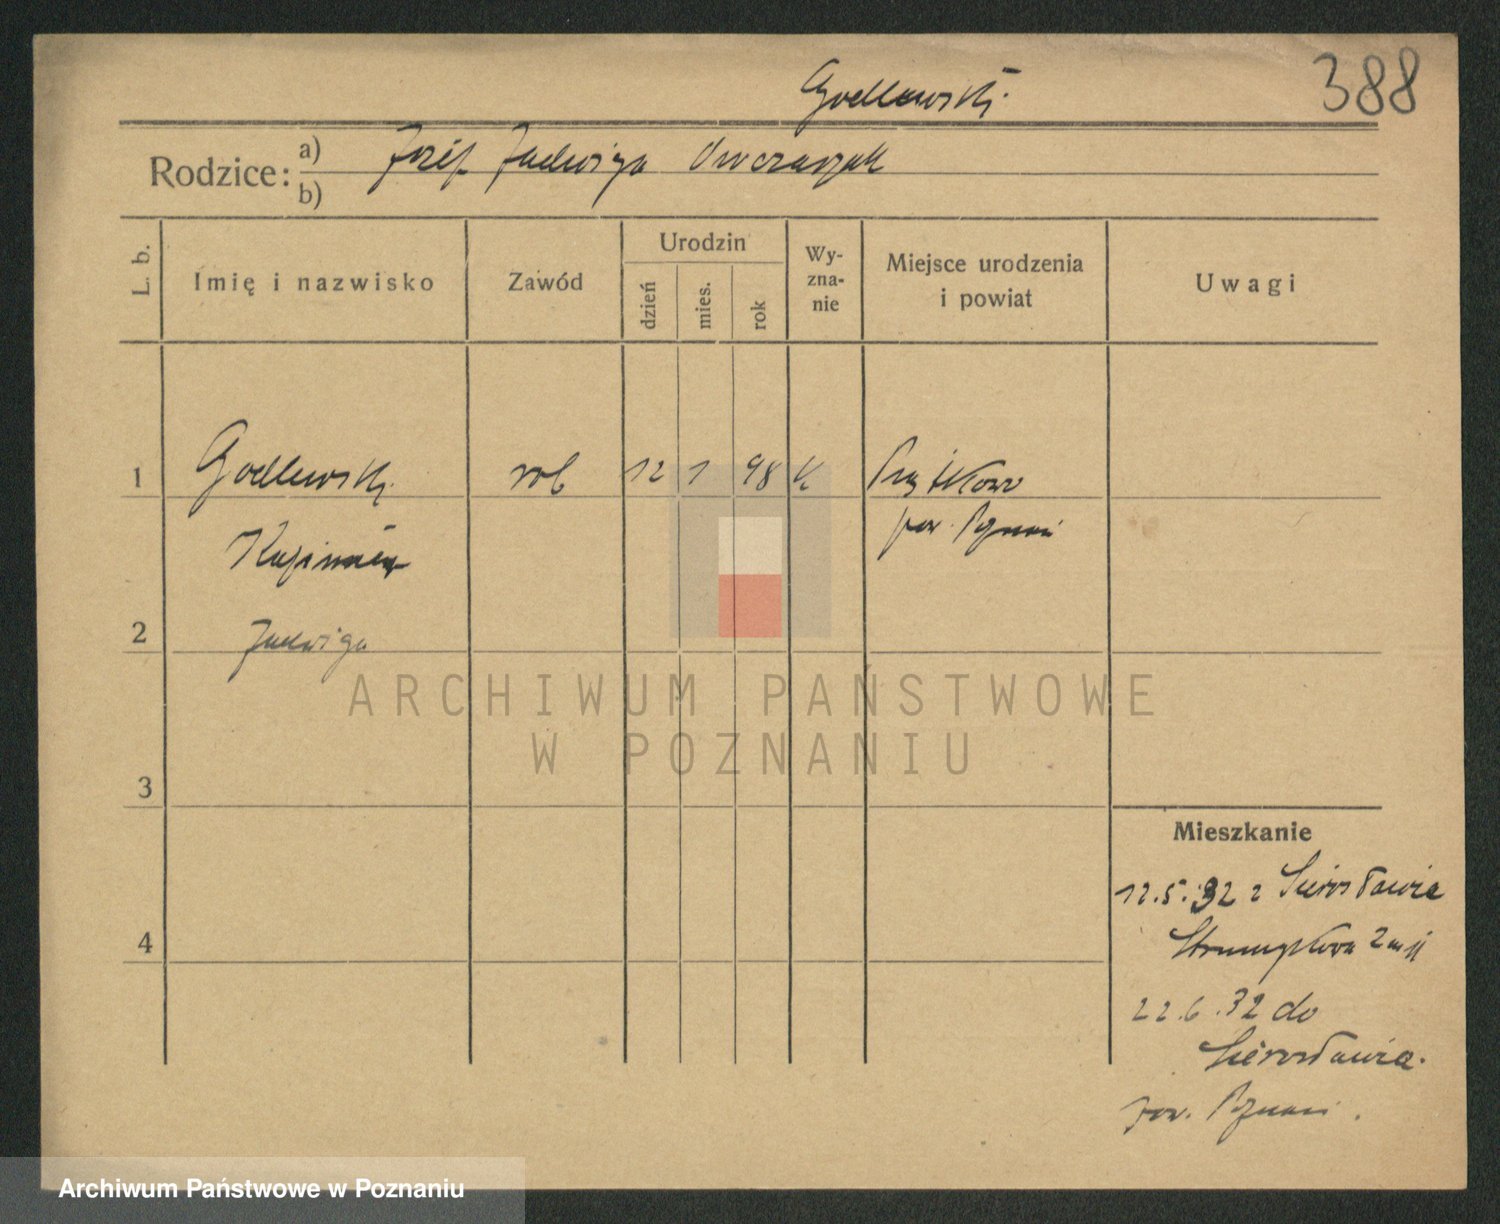 Godlewski
388
Rodzice: a) Józef Jadwiga Owczarzak
b)
L. b.
Imię i nazwisko
Zawód
Urodzin
dzień
mies.
rok
Wy-
zna-
nie
Miejsce urodzenia
i powiat
Uwagi
1 Godlewski rob 12 1 98 K
pow. Poznań
Kazimierz
2 Jadwiga
ARCHIWUM PAŃSTWOWE
W POZNANIU
3
Mieszkanie
12.5.32 z Sierosławia
4
22.6.32 do
Sierosławia.
pow. Poznań.
Archiwum Państwowe w Poznaniu